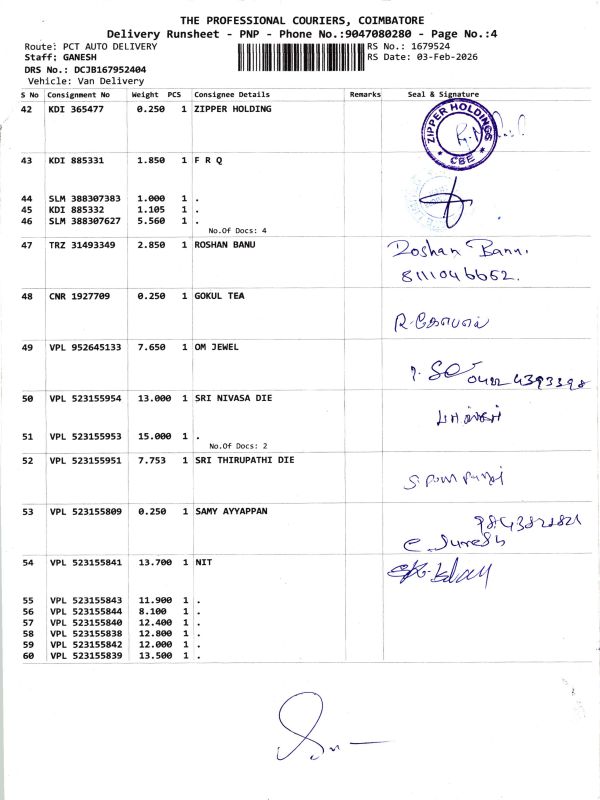 THE PROFESSIONAL COURIERS, COIMBATORE
Delivery Runsheet - PNP - Phone No.:9047080280 - Page No.:4
Route: PCT AUTO DELIVERY RS No.: 1679524
Staff: GANESH RS Date: 03-Feb-2026
DRS No.: DCJB167952404
Vehicle: Van Delivery
S No Consignment No Weight PCS Consignee Details Remarks Seal & Signature
42 KDI 365477 0.250 1 ZIPPER HOLDING
ZIPPER HOLDINGS
* CBE *
43 KDI 885331 1.850 1 F R Q
44 SLM 388307383 1.000 1 .
45 KDI 885332 1.105 1 .
46 SLM 388307627 5.560 1 .
No.Of Docs: 4
47 TRZ 31493349 2.850 1 ROSHAN BANU
Roshan Banu.
8111046652.
48 CNR 1927709 0.250 1 GOKUL TEA
49 VPL 952645133 7.650 1 OM JEWEL
0422 4393398
50 VPL 523155954 13.000 1 SRI NIVASA DIE
51 VPL 523155953 15.000 1 .
No.Of Docs: 2
52 VPL 523155951 7.753 1 SRI THIRUPATHI DIE
53 VPL 523155809 0.250 1 SAMY AYYAPPAN
C. Suresh
54 VPL 523155841 13.700 1 NIT
55 VPL 523155843 11.900 1 .
56 VPL 523155844 8.100 1 .
57 VPL 523155840 12.400 1 .
58 VPL 523155838 12.800 1 .
59 VPL 523155842 12.000 1 .
60 VPL 523155839 13.500 1 .